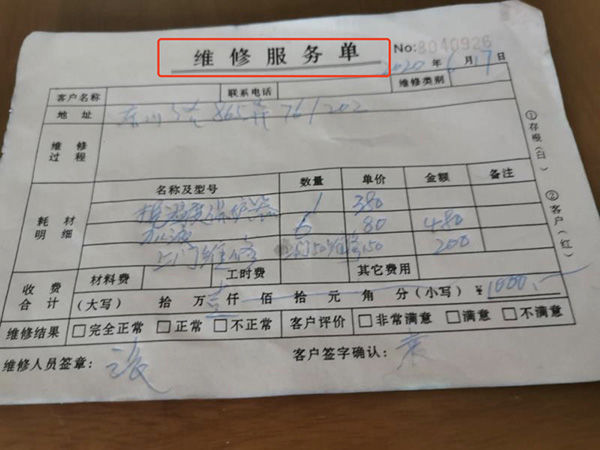 维修服务单
No:8040926
2020 年 6 月 17 日
客户名称 联系电话 维修类别
地址 865弄 76/202
维修过程
耗材明细 名称及型号 数量 单价 金额 备注
温度保护器 1 380
加液 6 80 480
上门维修 50 150 200
收费合计 材料费 工时费 其它费用
(大写) 拾 万 壹 仟 佰 拾 元 角 分 (小写) ¥ 1000.-
维修结果 □完全正常 □正常 □不正常 客户评价 □非常满意 □满意 □不满意
维修人员签章: 客户签字确认:
①存根(白) ②客户(红)